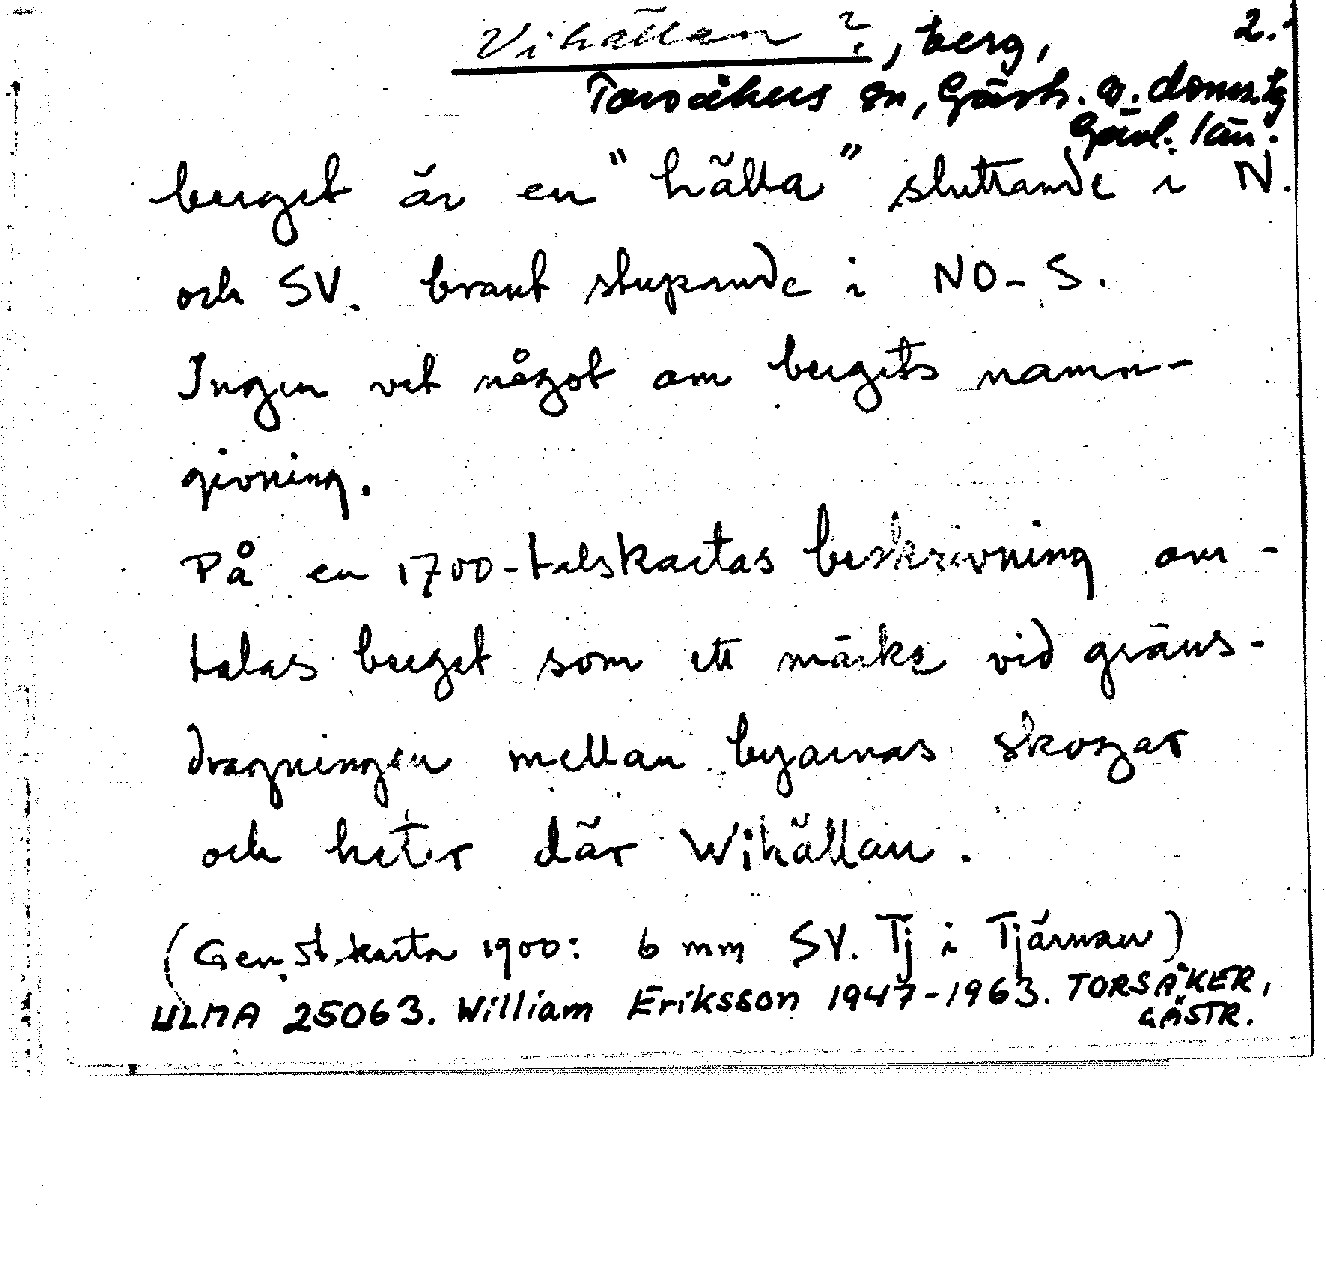 Vihällan ?, berg, 2.
Torsåkers sn, Gästr. ö. doms.tg
Gävl. län.
berget är en "hälla" sluttande i N.
och SV. brant stupande i NO-S.
Ingen vet något om bergets namn-
givning.
På en 1700-talskartas beskrivning om-
talas berget som ett märke vid gräns-
dragningen mellan byarnas skogar
och heter där Wihällan.
(Gen.st.karta 1900: 6 mm SV. Tj i Tjärnan)
ULMA 25063. William Eriksson 1947-1963. TORSÅKER,
GÄSTR.